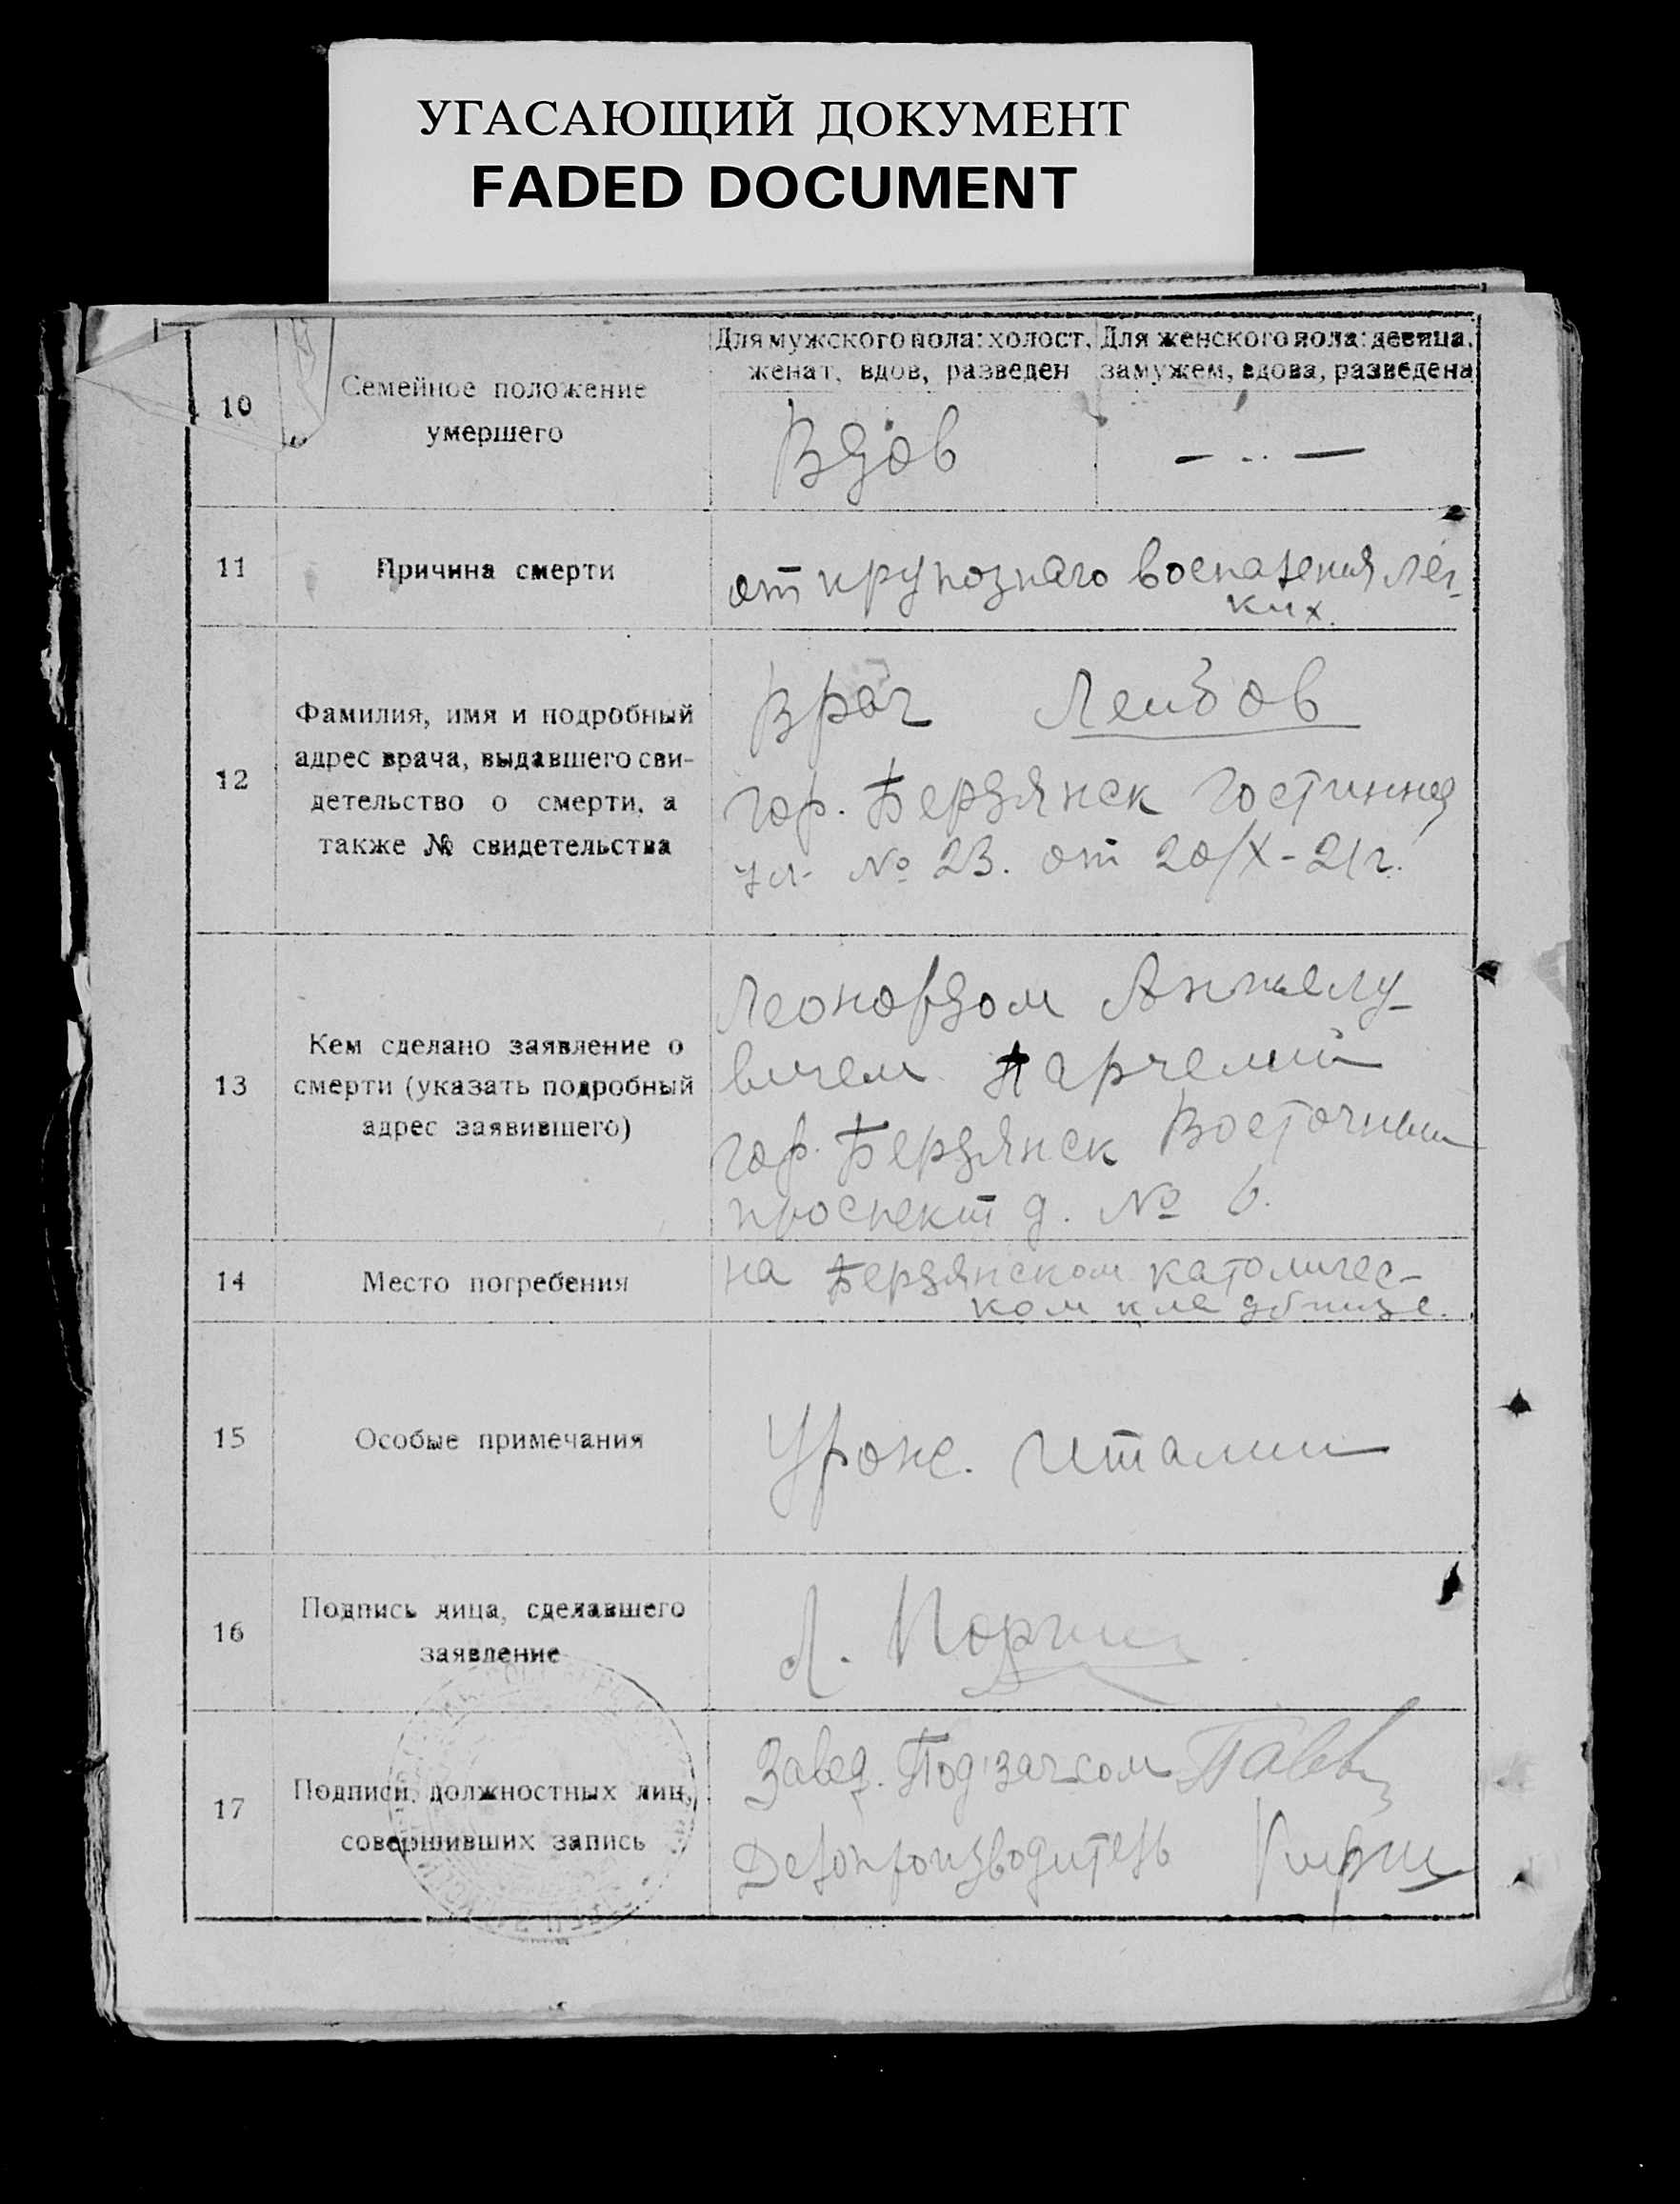 УГАСАЮЩИЙ ДОКУМЕНТ
FADED DOCUMENT
10
Семейное положение
умершего
Для мужского пола: холост,
женат, вдов, разведен
Для женского пола: девица,
замужем, вдова, разведена
Вдов
— .. —
11
Причина смерти
от крупознаго воспаления лег-
ких.
12
Фамилия, имя и подробный
адрес врача, выдавшего сви-
детельство о смерти, а
также № свидетельства
Врач Лейбов
гор. Бердянск Гостинная
ул. № 23. от 20/X-21г.
13
Кем сделано заявление о
смерти (указать подробный
адрес заявившего)
Леонардом Анжелу-
вичем
гор. Бердянск Восточный
проспект д. № 6.
14
Место погребения
на Бердянском католичес-
ком кладбище.
15
Особые примечания
Урож. Италии
16
Подпись лица, сделавшего
заявление
Л.
17
Подписи должностных лиц,
совершивших запись
Завед. Подзагсом
Делопроизводитель